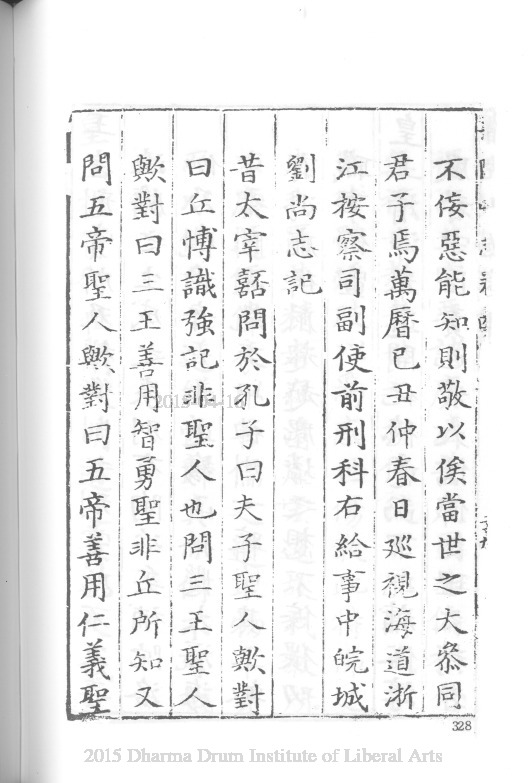 不佞惡能知則敬以俟當世之大叅同
君子焉萬曆己丑仲春日廵視海道浙
江按察司副使前刑科右給事中皖城
劉尚志記
昔太宰嚭問於孔子曰夫子聖人歟對
曰丘愽識強記非聖人也問三王聖人
歟對曰三王善用智勇聖非丘所知又
問五帝聖人歟對曰五帝善用仁義聖
328
2015-04-16
2015 Dharma Drum Institute of Liberal Arts